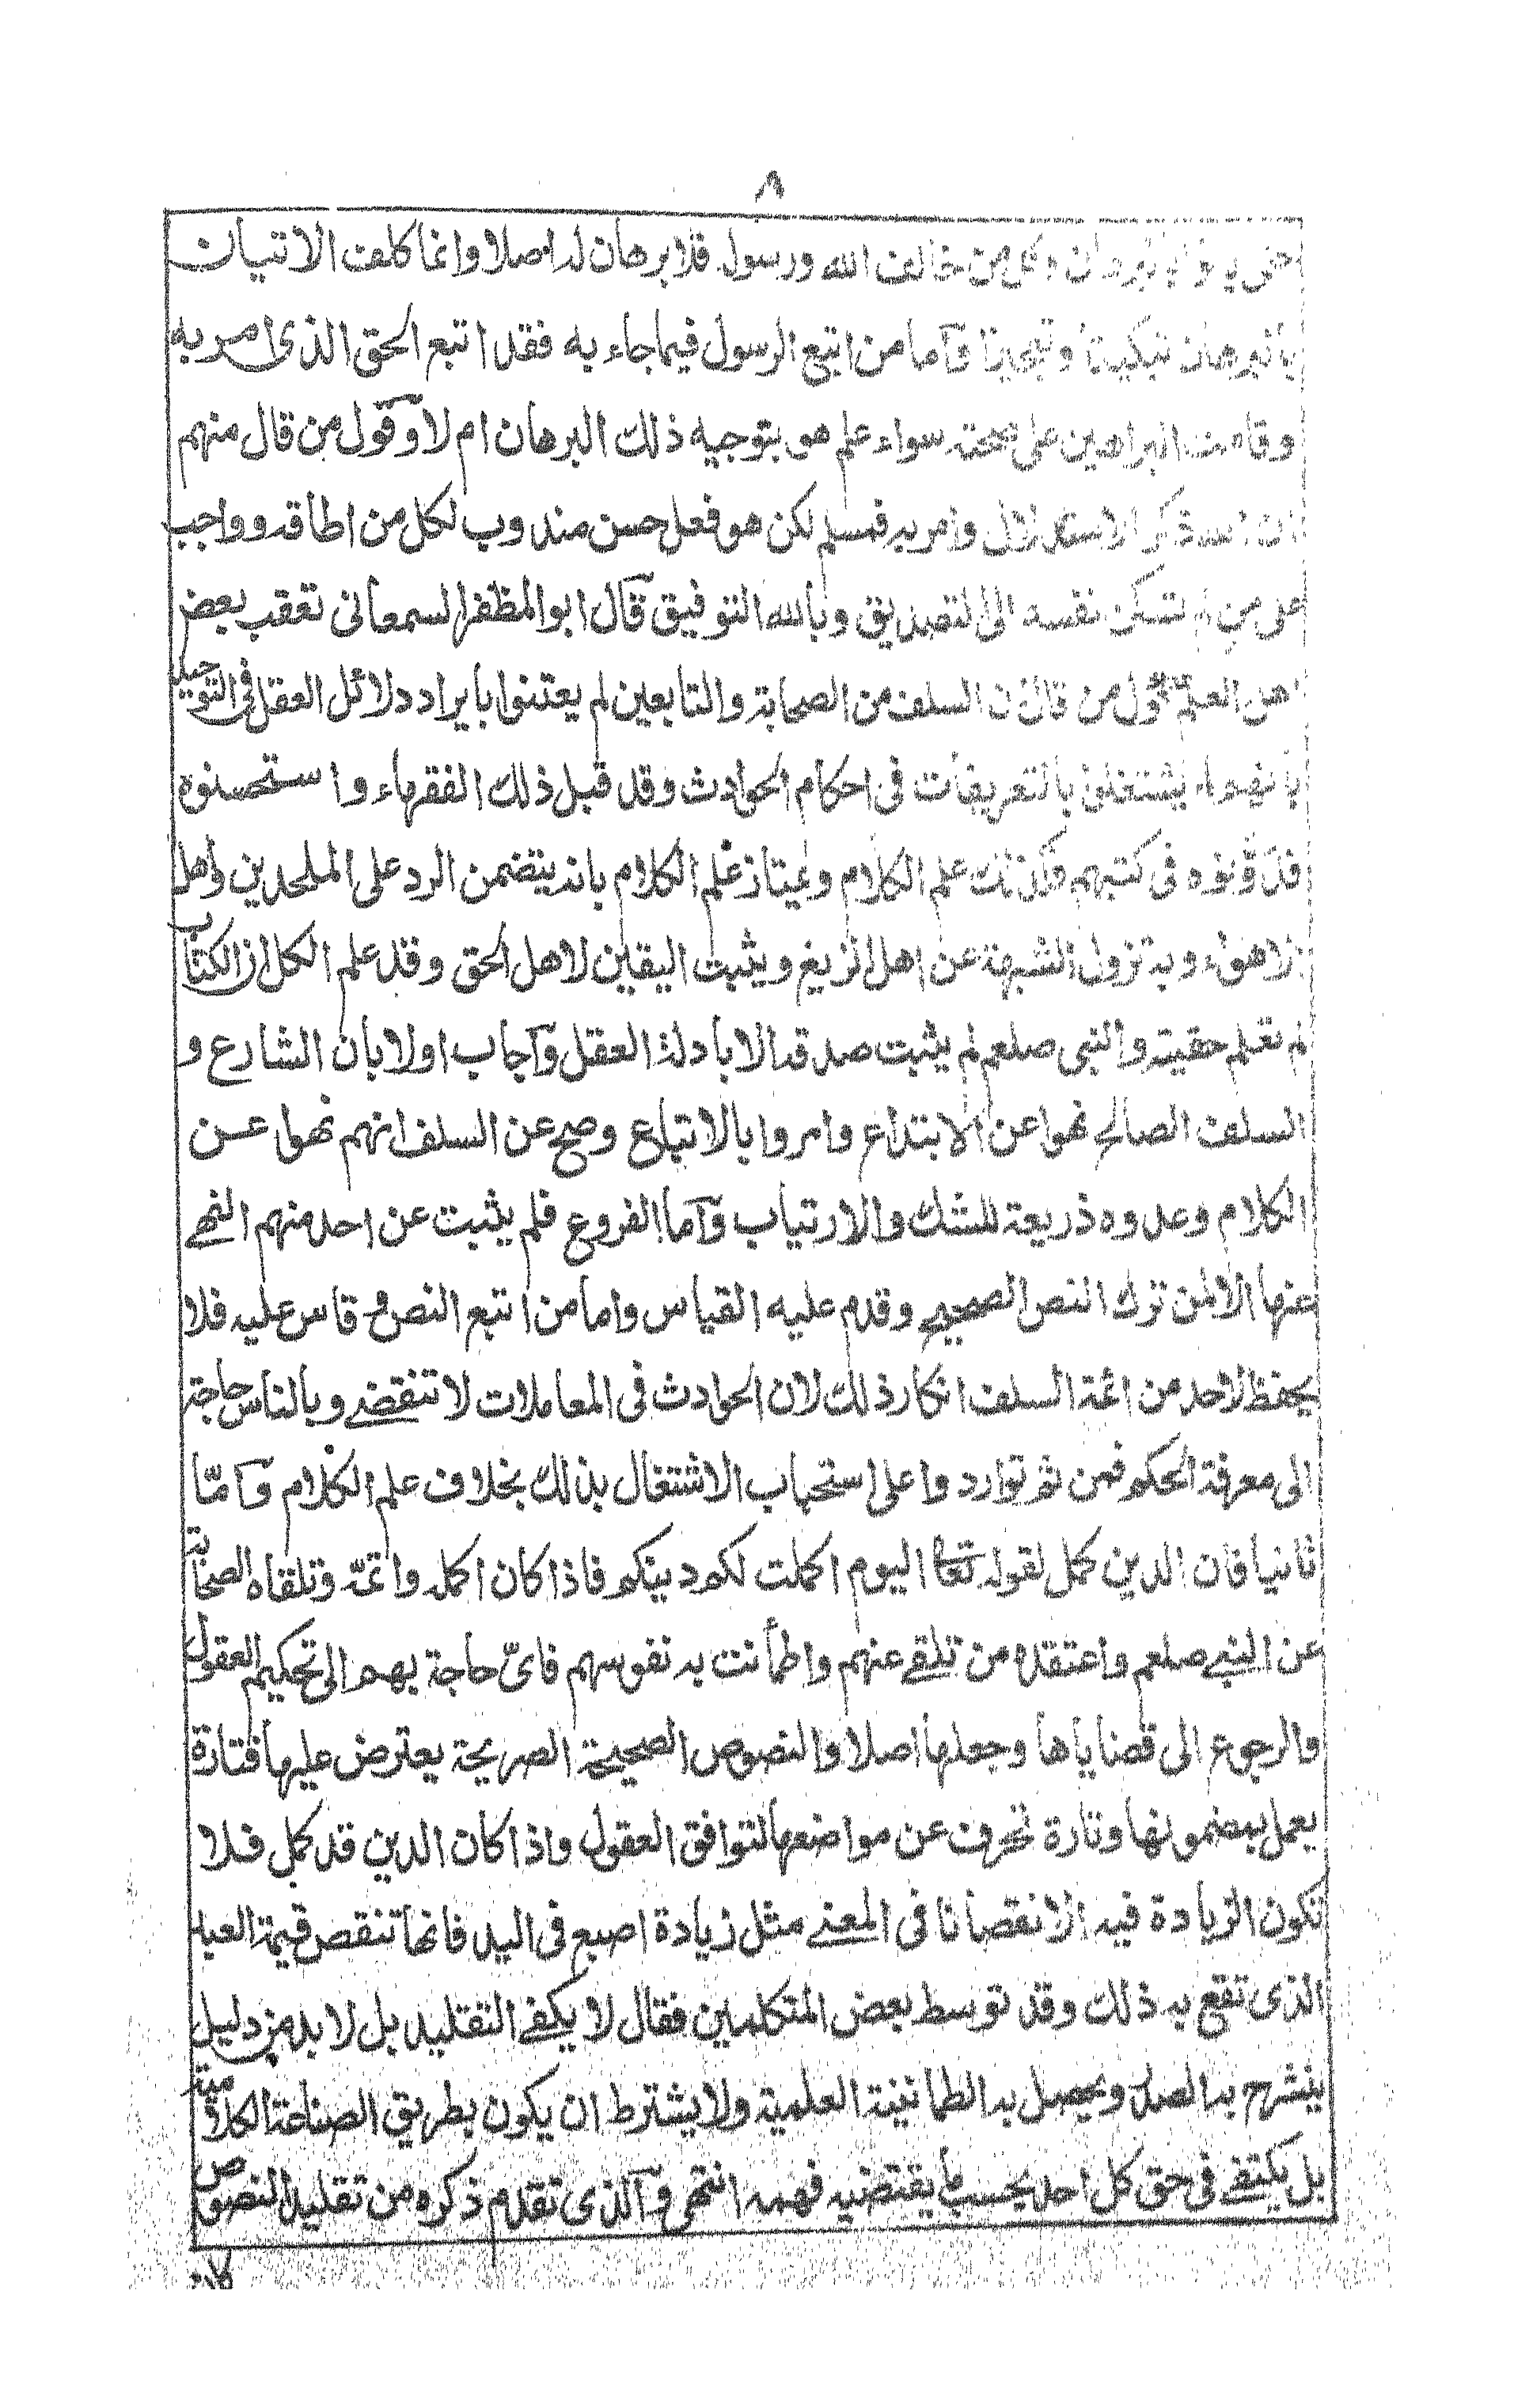 ٨
حتى يأتوا بالبرهان وكل من خالف الله ورسوله فلا برهان له اصلا وانما كلف الاتيان
بالبرهان تبكيتا وتعجيزا وآما من اتبع الرسول فيما جاء به فقد اتبع الحق الذى امر به
وقامت البراهين على صحته سواء علم هو بتوجيه ذلك البرهان ام لا وقول من قال منهم
ان الله ذكر الاستدلال وامر به فمسلم لكن هو فعل حسن مندوب لكل من اطاقه وواجب
على من لم تسكن نفسه الى التصديق وبالله التوفيق قال ابو المظفر السمعانى تعقب بعض
اهل العلم قول من قال ان السلف من الصحابة والتابعين لم يعتنوا بايراد دلائل العقل فى التوحيد
بانهم لم يشتغلوا بالتعريفات فى احكام الحوادث وقد قبل ذلك الفقهاء واستحسنوه
فدونوه فى كتبهم فكذلك علم الكلام ويمتاز علم الكلام بانه يتضمن الرد على الملحدين واهل
الاهواء وبه تزول الشبهة عن اهل الزيغ ويثبت اليقين لاهل الحق وقد علم الكل ان الكتاب
لم تعلم حقيته والنبى صلعم لم يثبت صدقه الا بادلة العقل وآجاب اولا بان الشارع و
السلف الصالح نهوا عن الابتداع وامروا بالاتباع وصح عن السلف انهم نهوا عن
الكلام وعدوه ذريعة للشك والارتياب وآما الفروع فلم يثبت عن احد منهم النهے
عنها الا لمن ترك النص الصحيح وقدم عليه القياس واما من اتبع النص و قاس عليه فلا
يحفظ لاحد من ائمة السلف انكار ذلك لان الحوادث فى المعاملات لا تنقضے وبالناس حاجة
الى معرفة الحكم فمن ثم توارد واعلى استحباب الاشتغال بذلك بخلاف علم الكلام وآمّا
ثانيا فان الدين كمل لقوله تعا اليوم اكملت لكم دينكم فاذا كان اكمله واتمّه وتلقاه الصحابة
عن النبے صلعم واعتقده من تلقے عنهم واطمأنت به نفوسهم فاىّ حاجة بهم الى تحكيم العقول
والرجوع الى قضاياها وجعلها اصلا والنصوص الصحيحة الصريحة يعترض عليها فتارة
يعمل بمضمونها وتارة تحرف عن مواضعها لتوافق العقول واذا كان الدين قد كمل فلا
تكون الزيادة فيه الا نقصانا فى المعنے مثل زيادة اصبع فى اليد فانها تنقص قيمة العبد
الذى تقع به ذلك وقد توسط بعض المتكلمين فقال لا يكفے التقليد بل لا بد من دليل
ينشرح به الصدر ويحصل به الطمانينة العلمية ولا يشترط ان يكون بطريق الصناعة الكلامية
بل يكتفے فى حق كل احد بحسب ما يقتضيه فهمه انتهى وآلذى تقدم ذكره من تقليد النصوص